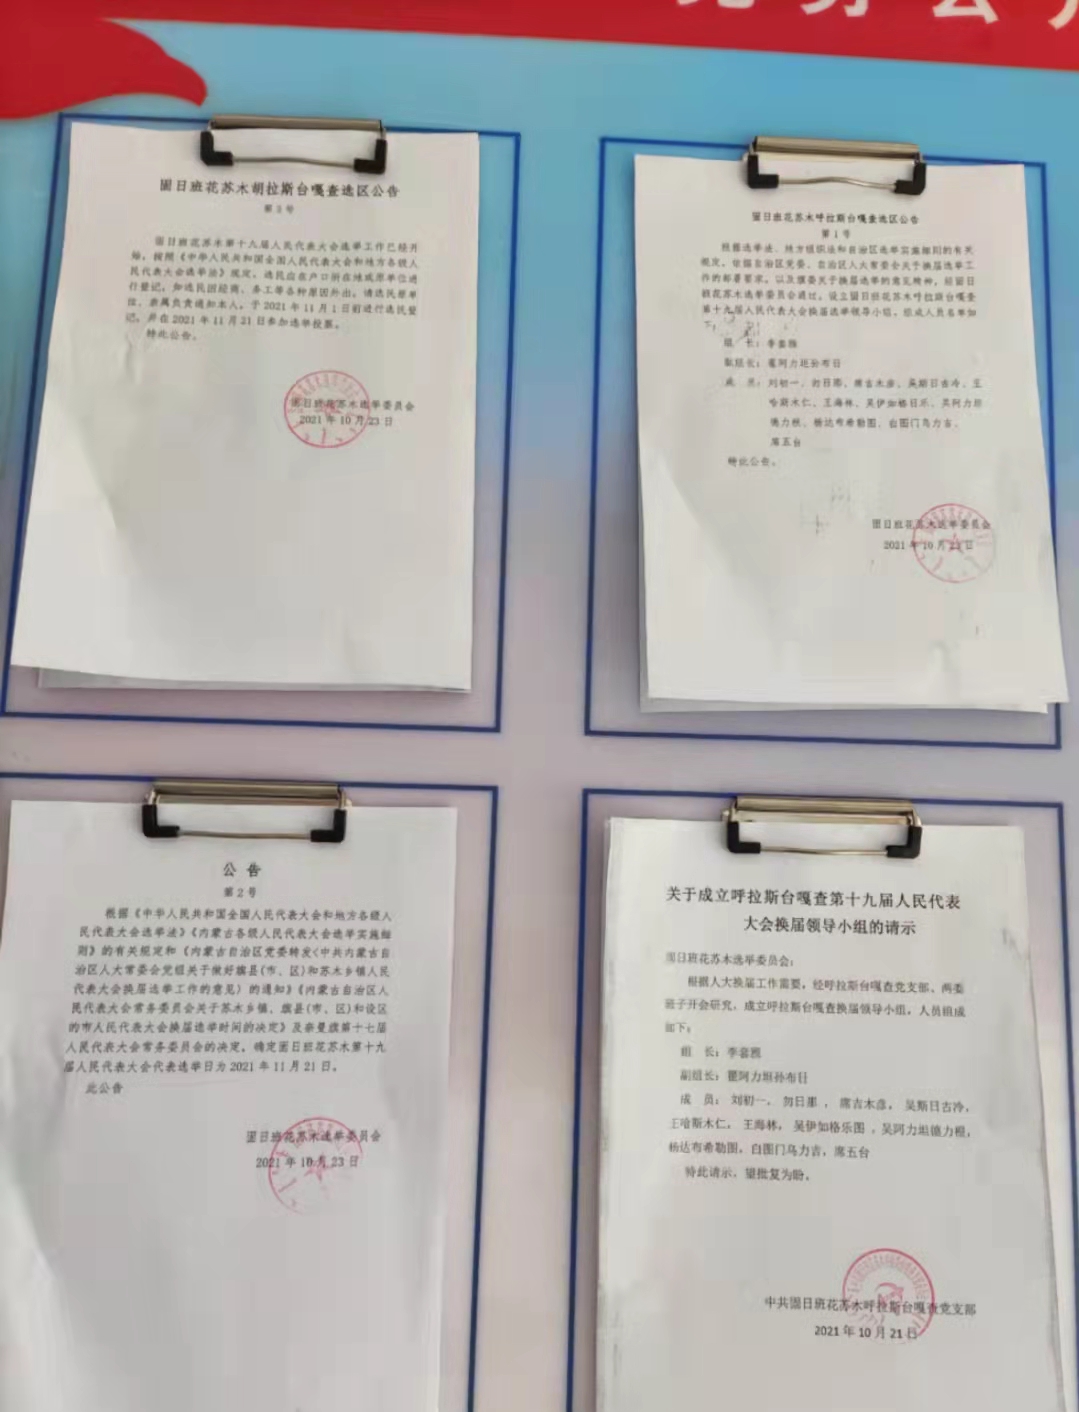 固日班花苏木胡拉斯台嘎查选区公告
第3号
固日班花苏木第十九届人民代表大会选举工作已经开
始，按照《中华人民共和国全国人民代表大会和地方各级人
民代表大会选举法》规定，选民应在户口所在地或原单位进
行登记，如选民因经商、务工等各种原因外出，请选民原单
位、亲属负责通知本人，于2021年11月1日前进行选民登
记，并在2021年11月21日参加选举投票。
特此公告。
固日班花苏木选举委员会
2021年10月23日
固日班花苏木呼拉斯台嘎查选区公告
第1号
根据选举法、地方组织法和自治区选举实施细则的有关
规定，依据自治区党委、自治区人大常委会关于换届选举工
作的部署要求，以及旗委关于换届选举的意见精神，经固日
班花苏木选举委员会通过，设立固日班花苏木呼拉斯台嘎查
第十九届人民代表大会换届选举领导小组，组成人员名单如
下：
组 长：李套雅
副组长：
成 员：刘初一、勿日那、席吉木彦、吴斯日古冷、王
哈斯木仁、王海林、吴伊如格日乐、吴阿力坦
德力根、杨达布希勒图、白图门乌力吉、
席五台
特此公告。
固日班花苏木选举委员会
2021年10月23日
公 告
第2号
根据《中华人民共和国全国人民代表大会和地方各级人
民代表大会选举法》《内蒙古各级人民代表大会选举实施细
则》的有关规定和《内蒙古自治区党委转发〈中共内蒙古自
治区人大常委会党组关于做好旗县(市、区)和苏木乡镇人民
代表大会换届选举工作的意见〉的通知》《内蒙古自治区人
民代表大会常务委员会关于苏木乡镇、旗县(市、区)和设区
的市人民代表大会换届选举时间的决定》及奈曼旗第十七届
人民代表大会常务委员会的决定，确定固日班花苏木第十九
届人民代表大会代表选举日为2021年11月21日。
此公告
固日班花苏木选举委员会
2021年10月23日
关于成立呼拉斯台嘎查第十九届人民代表
大会换届领导小组的请示
固日班花苏木选举委员会：
根据人大换届工作需要，经呼拉斯台嘎查党支部、两委
班子开会研究，成立呼拉斯台嘎查换届领导小组，人员组成
如下：
组 长：李套雅
副组长：瞿阿力坦孙布日
成 员：刘初一、勿日那，席吉木彦，吴斯日古冷，
王哈斯木仁，王海林，吴伊如格乐图，吴阿力坦德力根，
杨达布希勒图，白图门乌力吉，席五台
特此请示，望批复为盼。
中共固日班花苏木呼拉斯台嘎查党支部
2021年10月21日